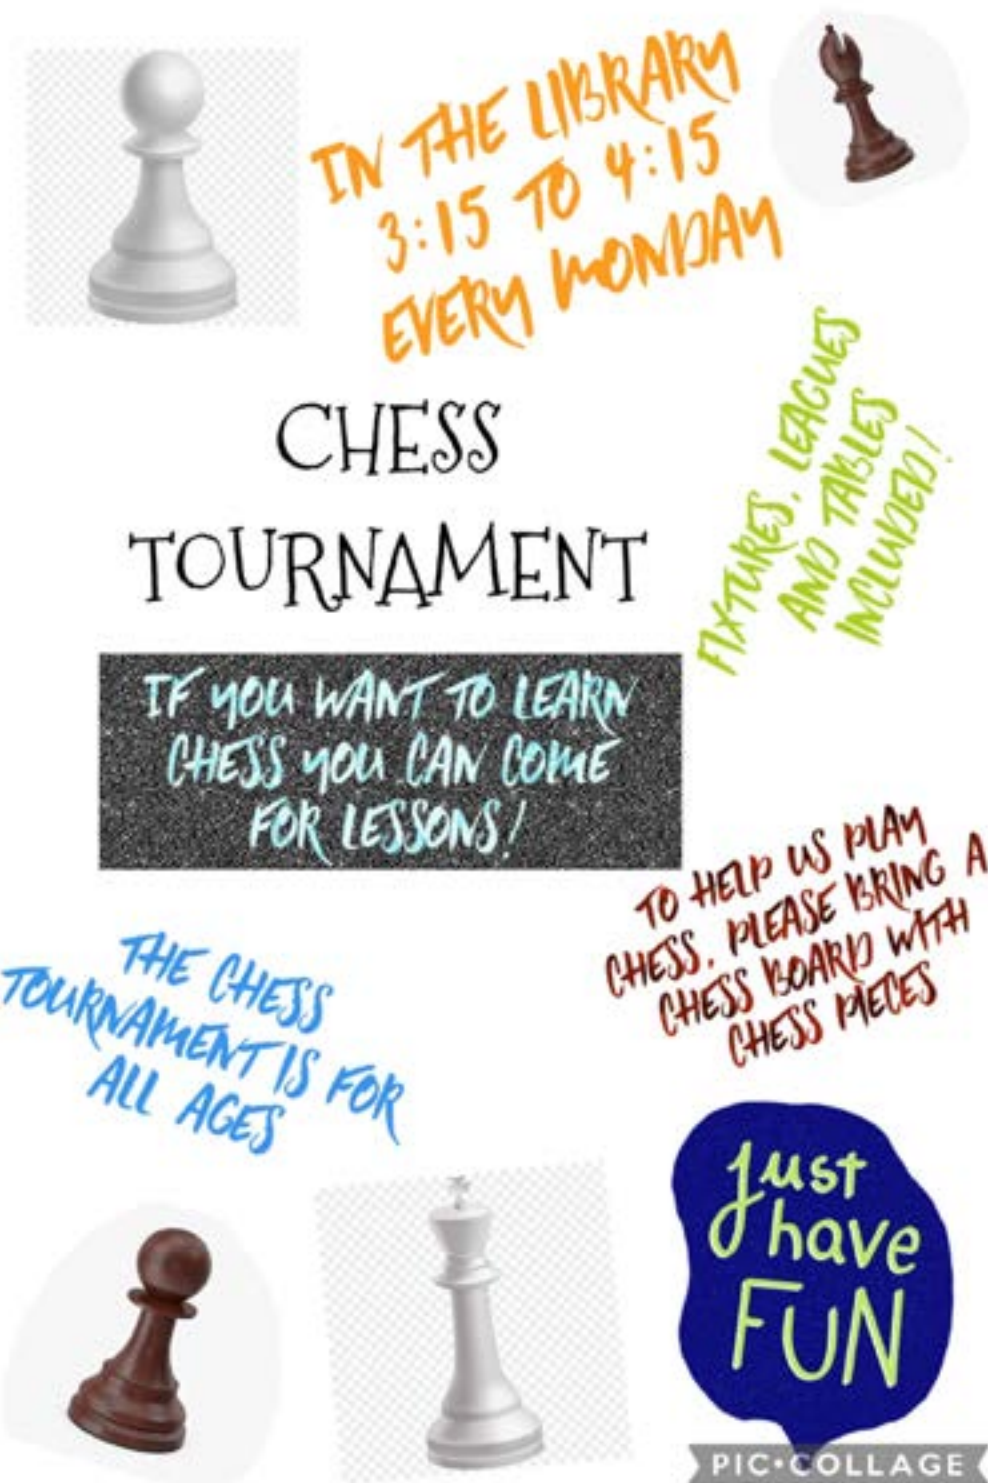 IN THE LIBRARY
3:15 TO 4:15
EVERY MONDAY
CHESS
TOURNAMENT
FIXTURES, LEAGUES
AND TABLES
INCLUDED!
IF YOU WANT TO LEARN
CHESS YOU CAN COME
FOR LESSONS!
TO HELP US PLAY
CHESS, PLEASE BRING A
CHESS BOARD WITH
CHESS PIECES
THE CHESS
TOURNAMENT IS FOR
ALL AGES
Just
have
FUN
PIC•COLLAGE